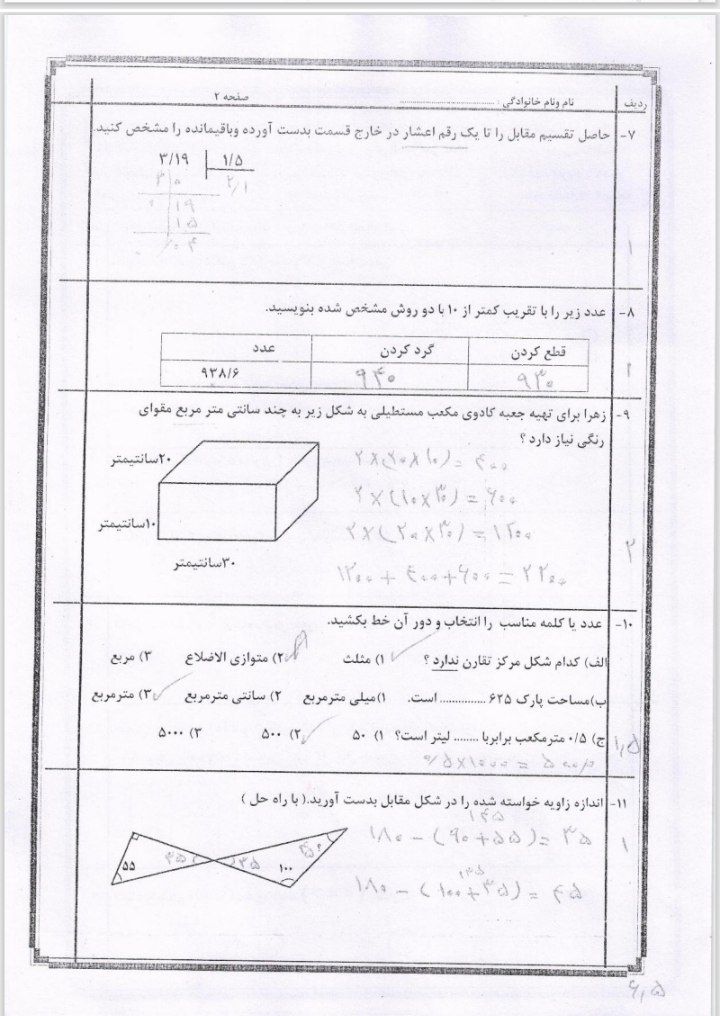 ردیف نام ونام خانوادگی : ........................ صفحه ۲
۷- حاصل تقسیم مقابل را تا یک رقم اعشار در خارج قسمت بدست آورده وباقیمانده را مشخص کنید.
۳/۱۹ ۱/۵
۳ ۰ ۲/۱
۰ ۱۹
۱۵
۰۴
۱
۸- عدد زیر را با تقریب کمتر از ۱۰ با دو روش مشخص شده بنویسید.
قطع کردن گرد کردن عدد
۹۳۰ ۹۴۰ ۹۳۸/۶
۱
۹- زهرا برای تهیه جعبه کادوی مکعب مستطیلی به شکل زیر به چند سانتی متر مربع مقوای
رنگی نیاز دارد ؟
۲۰سانتیمتر
۱۰سانتیمتر
۳۰سانتیمتر
۲×(۲۰×۱۰)=۴۰۰
۲×(۱۰×۳۰)=۶۰۰
۲×(۲۰×۳۰)=۱۲۰۰
۱۲۰۰+۴۰۰+۶۰۰=۲۲۰۰
۲
۱۰- عدد یا کلمه مناسب را انتخاب و دور آن خط بکشید.
الف) کدام شکل مرکز تقارن ندارد ؟ ۱) مثلث ۲) متوازی الاضلاع ۳) مربع
ب)مساحت پارک ۶۲۵ .............. است. ۱)میلی مترمربع ۲) سانتی مترمربع ۳) مترمربع
ج) ۰/۵ مترمکعب برابربا ........ لیتر است؟ ۱) ۵۰ ۲) ۵۰۰ ۳) ۵۰۰۰
۱,۵
۱۱- اندازه زاویه خواسته شده را در شکل مقابل بدست آورید.( با راه حل )
۱۴۵
۱۸۰-(۹۰+۵۵)=۳۵
۱۳۵
۱۸۰-(۱۰۰+۳۵)=۴۵
۵۵ ۳۵ ۳۵ ۱۰۰ ۴۵ ؟
۱
۶,۵